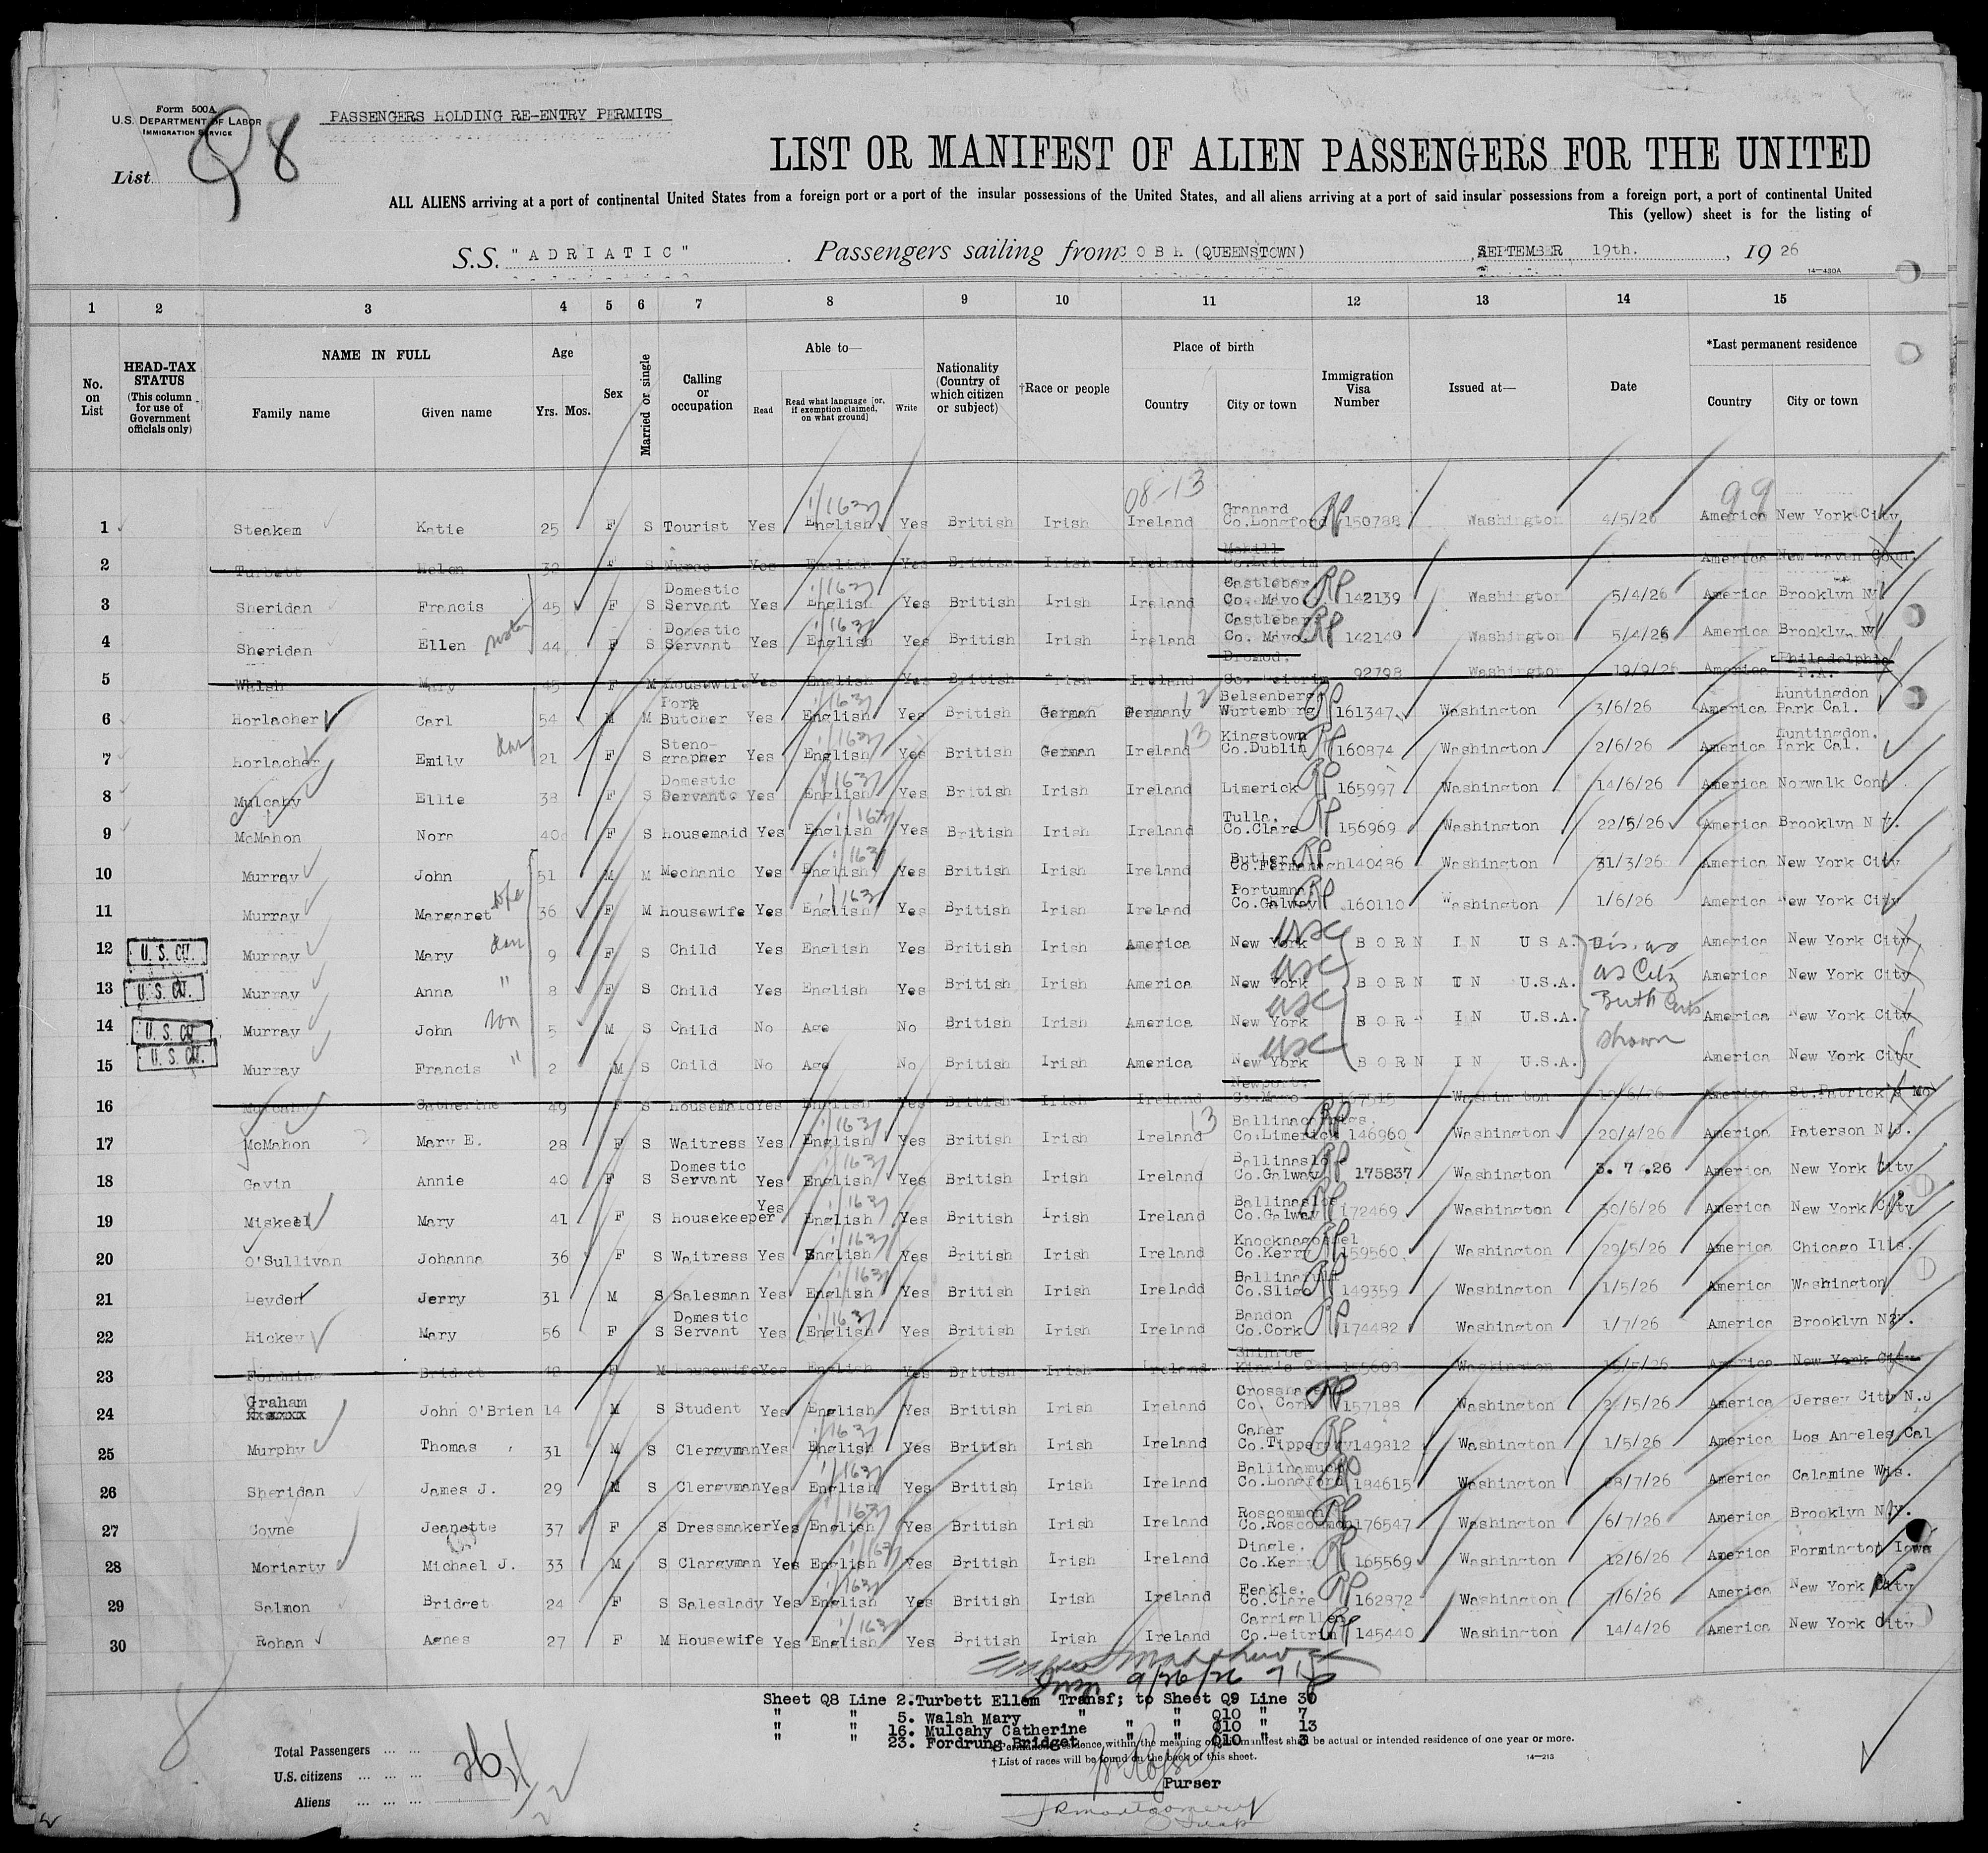 Form 500A
U.S. DEPARTMENT OF LABOR
IMMIGRATION SERVICE
PASSENGERS HOLDING RE-ENTRY PERMITS
List Q8
LIST OR MANIFEST OF ALIEN PASSENGERS FOR THE UNITED
ALL ALIENS arriving at a port of continental United States from a foreign port or a port of the insular possessions of the United States, and all aliens arriving at a port of said insular possessions from a foreign port, a port of continental United
This (yellow) sheet is for the listing of
S.S. "ADRIATIC" Passengers sailing from COBH (QUEENSTOWN), SEPTEMBER 19th., 1926
14-430A
1 2 3 4 5 6 7 8 9 10 11 12 13 14 15
No. on List
HEAD-TAX STATUS (This column for use of Government officials only)
NAME IN FULL Family name Given name
Age Yrs. Mos.
Sex
Married or single
Calling or occupation
Able to— Read Read what language [or, if exemption claimed, on what ground] Write
Nationality (Country of which citizen or subject)
†Race or people
Place of birth Country City or town
Immigration Visa Number
Issued at—
Date
*Last permanent residence Country City or town
08-13 99
1 Steakem Katie 25 F S Tourist Yes English Yes British Irish Ireland Granard Co.Longford RP 150788 Washington 4/5/26 America New York City
2 Turbett Helen 32 F S Nurse Yes English Yes British Irish Ireland Mohill Co.Leitrim America New Haven Conn.
3 Sheridan Francis 45 F S Domestic Servant Yes English Yes British Irish Ireland Castlebar Co. Mayo RP 142139 Washington 5/4/26 America Brooklyn NY
4 Sheridan Ellen sister 44 F S Domestic Servant Yes English Yes British Irish Ireland Castlebar Co. Mayo RP 142140 Washington 5/4/26 America Brooklyn NY
5 Walsh Mary 45 F M Housewife Yes English Yes British Irish Ireland Dromod. Co. Leitrim 92798 Washington 19/9/26 America Philadelphia P.A.
6 Horlacher Carl 54 M M Pork Butcher Yes English Yes British German Germany Belsenberg Wurtemberg RP 161347 Washington 3/6/26 America Huntingdon Park Cal.
7 Horlacher Emily dau 21 F S Steno-grapher Yes English Yes British German Ireland Kingstown Co.Dublin RP 160874 Washington 2/6/26 America Huntingdon. Park Cal.
8 Mulcahy Ellie 38 F S Domestic Servant. Yes English Yes British Irish Ireland Limerick RP 165997 Washington 14/6/26 America Norwalk Conn
9 McMahon Nora 40 F S Housemaid Yes English Yes British Irish Ireland Tulla. Co.Clare RP 156969 Washington 22/5/26 America Brooklyn N Y.
10 Murray John 51 M M Mechanic Yes English Yes British Irish Ireland Butler Co.Fermanagh RP 140486 Washington 31/3/26 America New York City
11 Murray Margaret wife 36 F M Housewife Yes English Yes British Irish Ireland Portumna Co.Galway RP 160110 Washington 1/6/26 America New York City
12 U.S. CIT. Murray Mary dau 9 F S Child Yes English Yes British Irish America New York USC BORN IN USA. America New York City
13 U.S. CIT. Murray Anna " 8 F S Child Yes English Yes British Irish America New York USC BORN IN U.S.A. America New York City
14 U.S. CIT. Murray John son 5 M S Child No Age No British Irish America New York USC BORN IN U.S.A. America New York City
15 U.S. CIT. Murray Francis " 2 M S Child No Age No British Irish America New York USC BORN IN U.S.A. America New York City
as Citz Birth Certs shown
16 Mulcahy Catherine 49 F S Housemaid Yes English Yes British Irish Ireland Newport. Co.Mayo Washington America St.Patrick's Mo
17 McMahon Mary E. 28 F S Waitress Yes English Yes British Irish Ireland Co.Limerick RP 146960 Washington 20/4/26 America Paterson N.J.
18 Gavin Annie 40 F S Domestic Servant Yes English Yes British Irish Ireland Ballinasloe Co.Galway RP 175837 Washington 3.7.26 America New York City
19 Miskell Mary 41 F S Housekeeper Yes English Yes British Irish Ireland Ballinasloe Co.Galway RP 172469 Washington 30/6/26 America New York City
20 O'Sullivan Johanna 36 F S Waitress Yes English Yes British Irish Ireland Knocknagoshel Co.Kerry RP 159560 Washington 29/5/26 America Chicago Ills.
21 Leyden Jerry 31 M S Salesman Yes English Yes British Irish Ireladd Co.Sligo RP 149359 Washington 1/5/26 America Washington
22 Hickey Mary 56 F S Domestic Servant Yes English Yes British Irish Ireland Bandon Co.Cork RP 174482 Washington 1/7/26 America Brooklyn NY.
23 Bridget F M Housewife Yes English Yes British Irish Ireland King's Co. Washington America New York City
24 Graham John O'Brien 14 M S Student Yes English Yes British Irish Ireland Crosshaven Co. Cork RP 157188 Washington America Jersey City N.J
25 Murphy Thomas 31 M S Clergyman Yes English Yes British Irish Ireland Caher Co.Tipperary RP 149812 Washington 1/5/26 America Los Angeles Cal
26 Sheridan James J. 29 M S Clergyman Yes English Yes British Irish Ireland Ballinamuck Co.Longford RP 184615 Washington 28/7/26 America Calamine Wis.
27 Coyne Jeanette 37 F S Dressmaker Yes English Yes British Irish Ireland Roscommon Co.Roscommon RP 176547 Washington 6/7/26 America Brooklyn N.Y.
28 Moriarty Michael J. 33 M S Clargyman Yes English Yes British Irish Ireland Dingle. Co.Kerry RP 165569 Washington 12/6/26 America Formington Iowa
29 Salmon Bridget 24 F S Saleslady Yes English Yes British Irish Ireland Feakle. Co.Clare RP 162872 Washington 7/6/26 America New York City
30 Rohan Agnes 27 F M Housewife Yes English Yes British Irish Ireland Carrigallen Co.Leitrim RP 145440 Washington 14/4/26 America New York City
9/26/26
Sheet Q8 Line 2. Turbett Ellem Transf; to Sheet Q9 Line 30
" " 5. Walsh Mary " " Q10 " 7
" " 16. Mulcahy Catherine " " Q10 " 13
" " 23. Fordrung Bridget " " Q10 " 3
* Permanent residence within the meaning of this manifest shall be actual or intended residence of one year or more.
† List of races will be found on the back of this sheet.
14-213
Purser
Total Passengers
U.S. citizens
Aliens
26